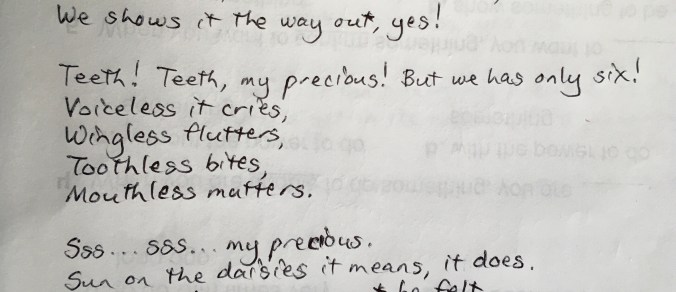 We shows it the way out, yes!
Teeth! Teeth, my precious! But we has only six!
Voiceless it cries,
Wingless flutters,
Toothless bites,
Mouthless mutters.
Sss... sss... my precious.
Sun on the daisies it means, it does.